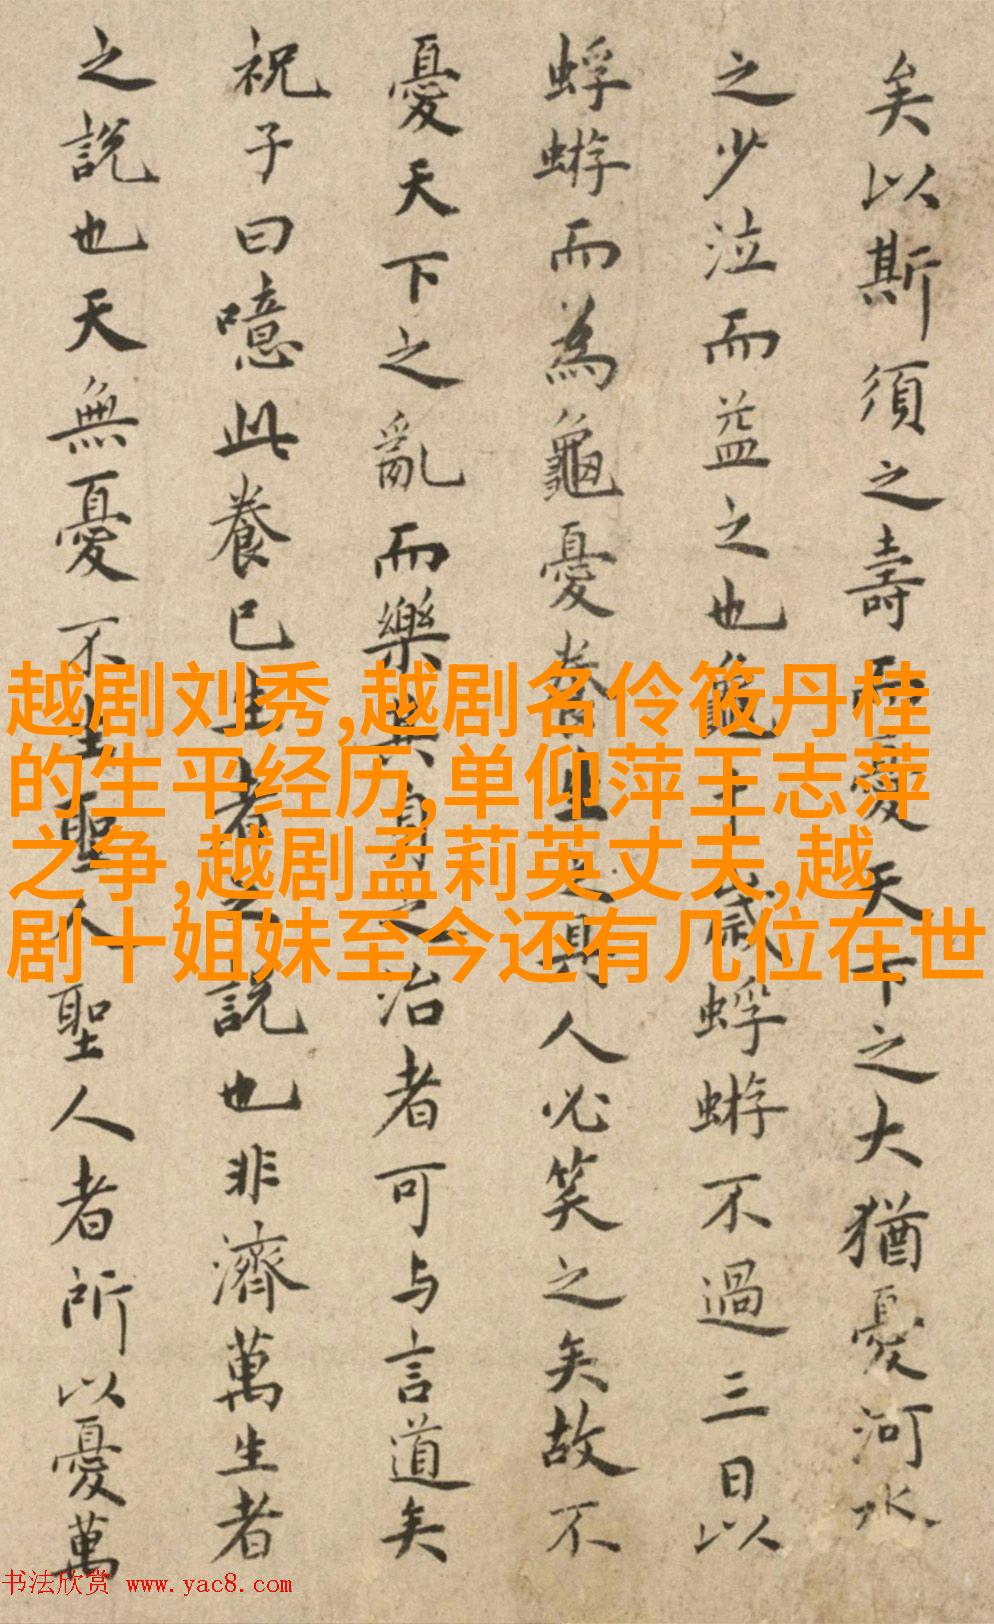 矣以斯須之壽而憂天下之大猶憂河水
之少泣而益之也龜千歲蜉蝣不過三日以
蜉蝣而為龜憂養生之具人必笑之矣故不
憂天下之亂而樂其身之治者可与言道矣
祝子曰噫此養已生者之說也非濟萬生者
之說也天無憂不生聖人聖人者所以憂萬
越剧刘秀,越剧名伶筱丹桂
的生平经历,单仰萍王志萍
之争,越剧孟莉英丈夫,越
剧十姐妹至今还有几位在世
书法欣赏 www.yac8.com